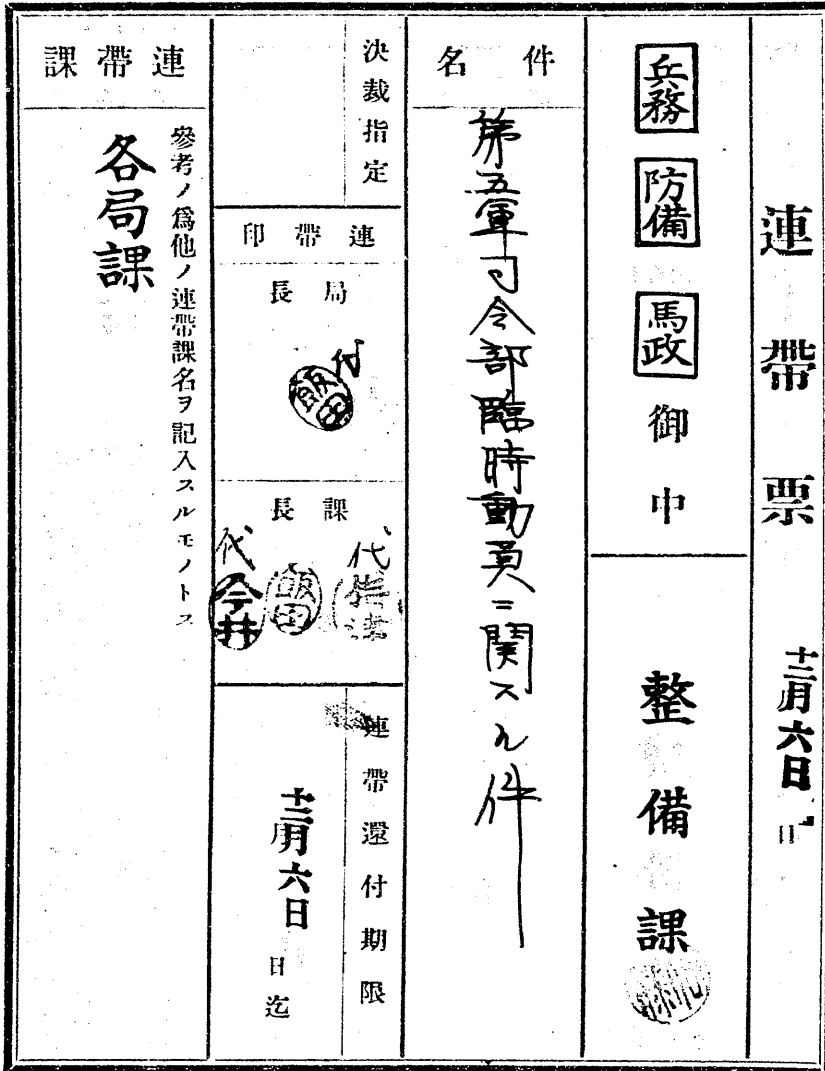 連帶票
十二月六日
日
兵務 防備 馬政 御中
整備課
件名
第五軍司令部臨時動員ニ関スル件
決裁指定
連帶印
局長
代
飯田
課長
代
飯田
代
今井
連帶還付期限
十二月六日
月
日迄
連帶課
參考ノ爲他ノ連帶課名ヲ記入スルモノトス
各局課